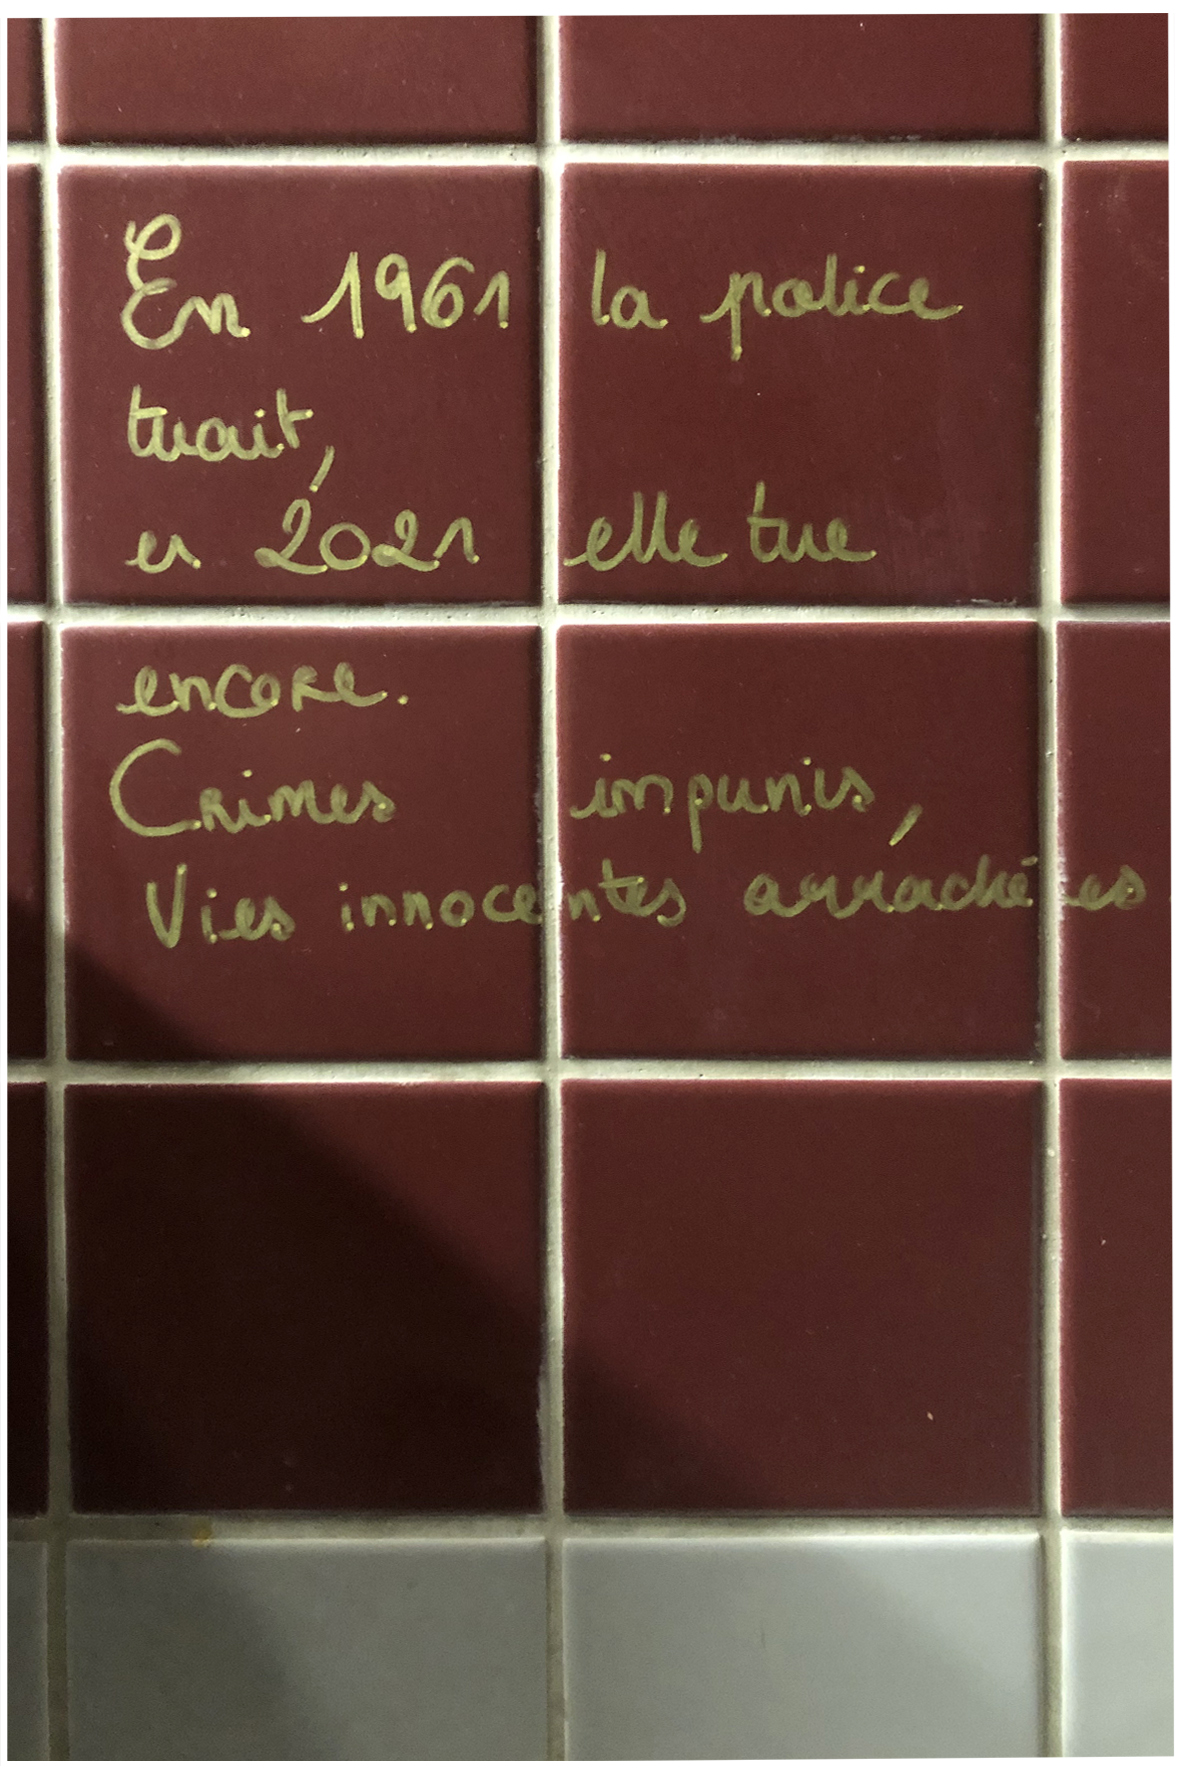 En 1961 la police
tuait,
en 2021 elle tue
encore.
Crimes impunis,
Vies innocentes arrachées